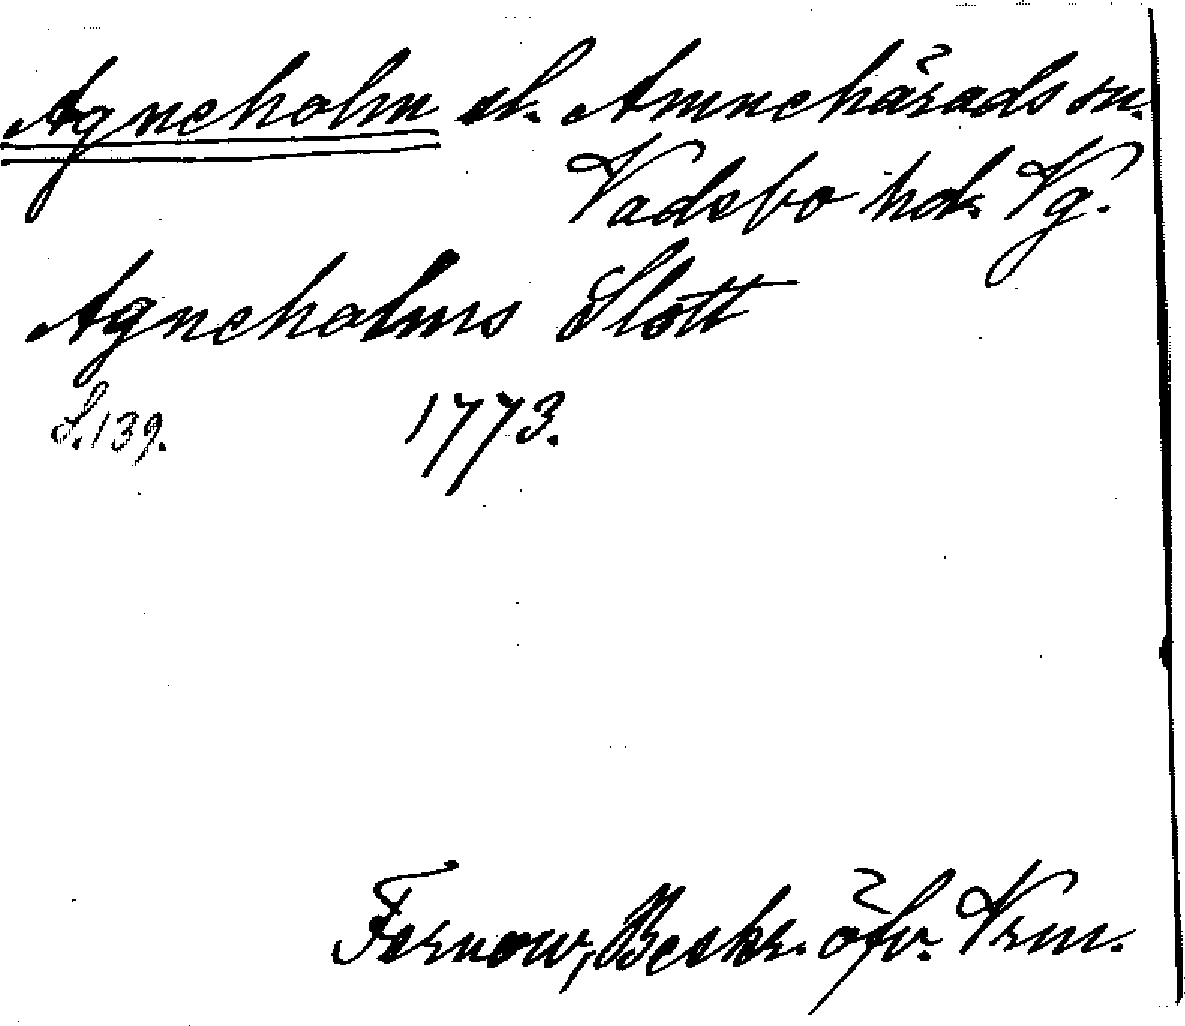 Agneholm sl. Amnehärads sn.
Vadsbo hd. Vg.
Agneholms Slott
S. 139. 1773.
Fernow, Beskr. öfv. Vrm.